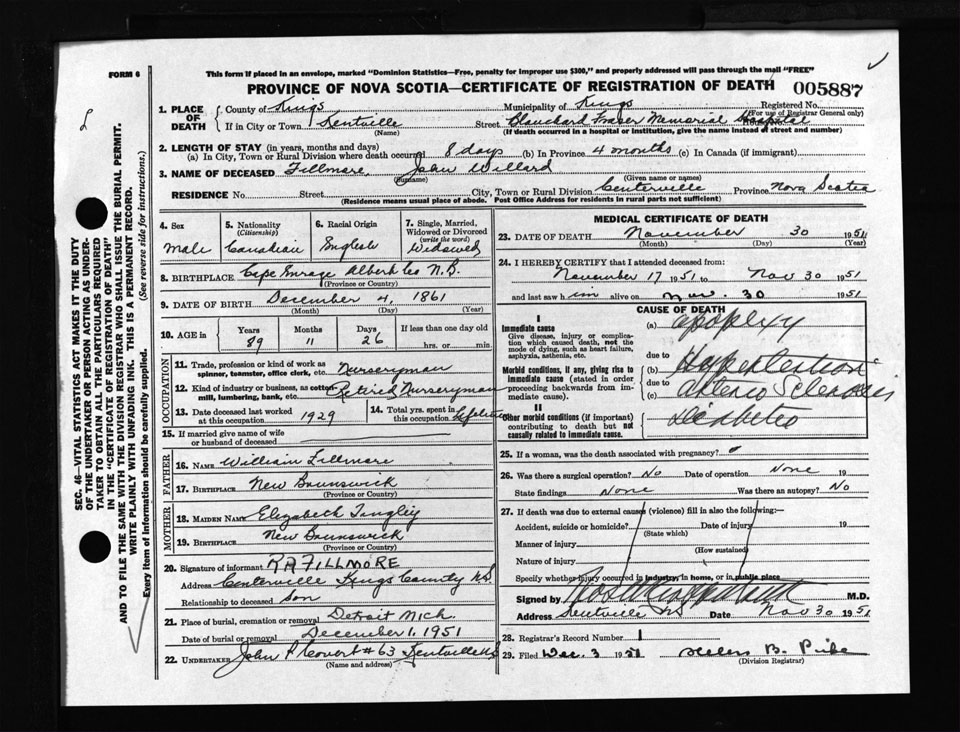 FORM 6
This form if placed in an envelope, marked "Dominion Statistics—Free, penalty for improper use $300," and properly addressed will pass through the mail "FREE"
PROVINCE OF NOVA SCOTIA—CERTIFICATE OF REGISTRATION OF DEATH 005887
1. PLACE OF DEATH County of Kings Municipality of Kings Registered No.
(For use of Registrar General only)
If in City or Town Kentville Street Blanchard Fraser Memorial Hospital
(Name) (If death occurred in a hospital or institution, give the name instead of street and number)
2. LENGTH OF STAY (in years, months and days)
(a) In City, Town or Rural Division where death occurred 8 days (b) In Province 4 months (c) In Canada (if immigrant)
3. NAME OF DECEASED Fillmore, John Willard
(Surname) (Given name or names)
RESIDENCE No. Street City, Town or Rural Division Centerville Province Nova Scotia
(Residence means usual place of abode. Post Office Address for residents in rural parts not sufficient)
4. Sex Male
5. Nationality (Citizenship) Canadian
6. Racial Origin English
7. Single, Married, Widowed or Divorced (write the word) Widowed
8. BIRTHPLACE Cape Enrage Albert Co N.B.
(Province or Country)
9. DATE OF BIRTH December 4, 1861
(Month) (Day) (Year)
10. AGE in Years 89 Months 11 Days 26 If less than one day old hrs. or min.
OCCUPATION
11. Trade, profession or kind of work as spinner, teamster, office clerk, etc. Nurseryman
12. Kind of industry or business, as cotton mill, lumbering, bank, etc. Retired Nurseryman
13. Date deceased last worked at this occupation 1929
14. Total yrs. spent in this occupation Lifetime
15. If married give name of wife or husband of deceased
FATHER
16. NAME William Fillmore
17. BIRTHPLACE New Brunswick
(Province or Country)
MOTHER
18. MAIDEN NAME Elizabeth Tingley
19. BIRTHPLACE New Brunswick
(Province or Country)
20. Signature of informant R A FILLMORE
Address Centerville Kings County N.S.
Relationship to deceased Son
21. Place of burial, cremation or removal Detroit Mich.
Date of burial or removal December 1, 1951
22. UNDERTAKER John R Covert #63 Kentville N.S.
(Name and address)
MEDICAL CERTIFICATE OF DEATH
23. DATE OF DEATH November 30 1951
(Month) (Day) (Year)
24. I HEREBY CERTIFY that I attended deceased from:
November 17 1951 to Nov 30 1951
and last saw him alive on Nov. 30 1951
CAUSE OF DEATH
I
Immediate cause
Give disease, injury or complication which caused death, not the mode of dying, such as heart failure, asphyxia, asthenia, etc.
(a) apoplexy
due to
Morbid conditions, if any, giving rise to immediate cause (stated in order proceeding backwards from immediate cause).
(b) Hypertention
due to
(c) Arterio Sclerosis
II
Other morbid conditions (if important) contributing to death but not causally related to immediate cause.
Diabetes
25. If a woman, was the death associated with pregnancy?
26. Was there a surgical operation? No Date of operation None 19
State findings None Was there an autopsy? No
27. If death was due to external causes (violence) fill in also the following:—
Accident, suicide or homicide? Date of injury 19
(State which)
Manner of injury
(How sustained)
Nature of injury
Specify whether injury occurred in industry, in home, or in public place
Signed by M.D.
Address Kentville NS Date Nov 30 1951
28. Registrar's Record Number 1
29. Filed Dec. 3 1951 Helen B.
(Division Registrar)
SEC. 46—VITAL STATISTICS ACT MAKES IT THE DUTY
OF THE UNDERTAKER OR PERSON ACTING AS UNDERTAKER TO OBTAIN ALL THE PARTICULARS REQUIRED
IN THE "CERTIFICATE OF REGISTRATION OF DEATH"
AND TO FILE THE SAME WITH THE DIVISION REGISTRAR WHO SHALL ISSUE THE BURIAL PERMIT.
WRITE PLAINLY WITH UNFADING INK. THIS IS A PERMANENT RECORD.
Every item of information should be carefully supplied. (See reverse side for instructions.)